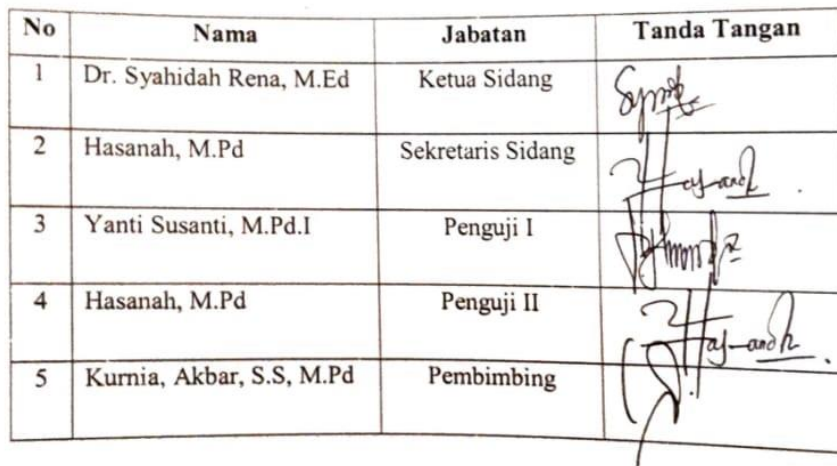 No Nama Jabatan Tanda Tangan
1 Dr. Syahidah Rena, M.Ed Ketua Sidang
2 Hasanah, M.Pd Sekretaris Sidang
3 Yanti Susanti, M.Pd.I Penguji I
4 Hasanah, M.Pd Penguji II
5 Kurnia, Akbar, S.S, M.Pd Pembimbing